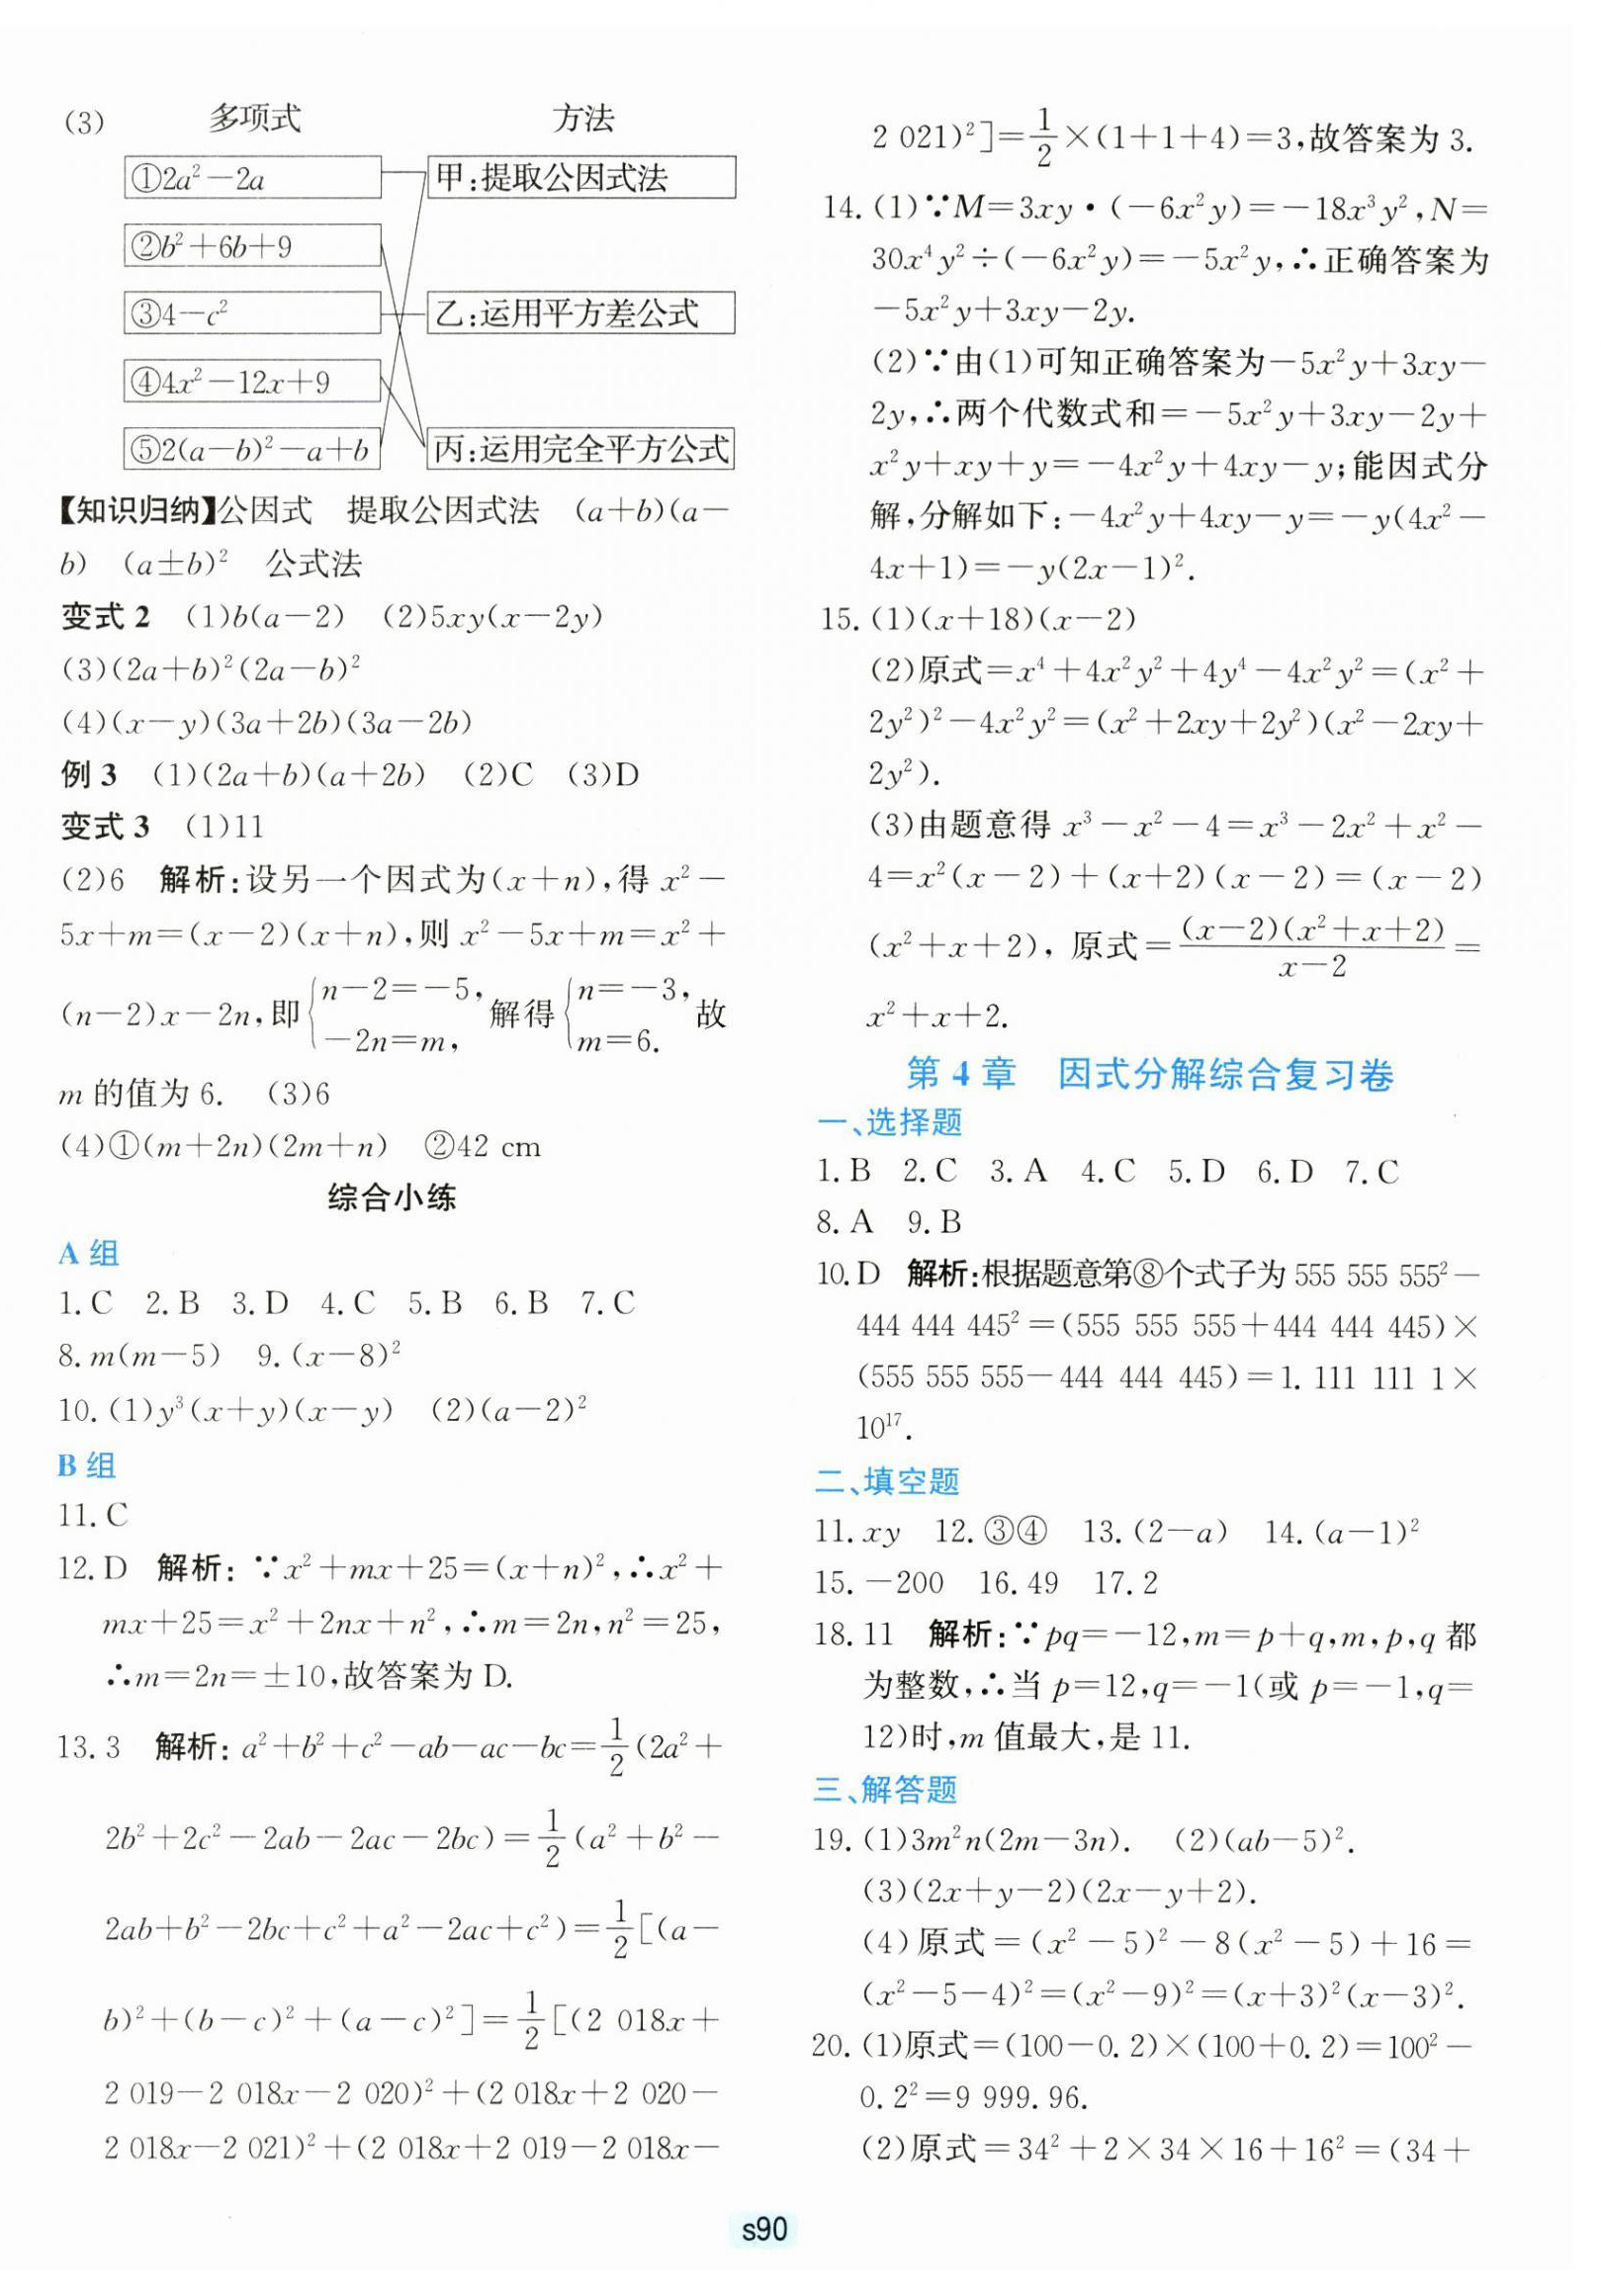 (3) 多项式 方法
①2a²－2a 甲:提取公因式法
②b²＋6b＋9
③4－c² 乙:运用平方差公式
④4x²－12x＋9
⑤2(a－b)²－a＋b 丙:运用完全平方公式
【知识归纳】公因式 提取公因式法 (a＋b)(a－
b) (a±b)² 公式法
变式 2 (1)b(a－2) (2)5xy(x－2y)
(3)(2a＋b)²(2a－b)²
(4)(x－y)(3a＋2b)(3a－2b)
例 3 (1)(2a＋b)(a＋2b) (2)C (3)D
变式 3 (1)11
(2)6 解析:设另一个因式为(x＋n),得 x²－
5x＋m＝(x－2)(x＋n),则 x²－5x＋m＝x²＋
(n－2)x－2n,即{n－2＝－5, －2n＝m, 解得{n＝－3, m＝6. 故
m 的值为 6. (3)6
(4)①(m＋2n)(2m＋n) ②42 cm
综合小练
A 组
1. C 2. B 3. D 4. C 5. B 6. B 7. C
8. m(m－5) 9. (x－8)²
10. (1)y³(x＋y)(x－y) (2)(a－2)²
B 组
11. C
12. D 解析: ∵x²＋mx＋25＝(x＋n)²,∴x²＋
mx＋25＝x²＋2nx＋n²,∴m＝2n,n²＝25,
∴m＝2n＝±10,故答案为 D.
13. 3 解析: a²＋b²＋c²－ab－ac－bc＝1/2(2a²＋
2b²＋2c²－2ab－2ac－2bc)＝1/2(a²＋b²－
2ab＋b²－2bc＋c²＋a²－2ac＋c²)＝1/2[(a－
b)²＋(b－c)²＋(a－c)²]＝1/2[(2 018x＋
2 019－2 018x－2 020)²＋(2 018x＋2 020－
2 018x－2 021)²＋(2 018x＋2 019－2 018x－
2 021)²]＝1/2×(1＋1＋4)＝3,故答案为 3.
14. (1)∵M＝3xy·(－6x²y)＝－18x³y²,N＝
30x⁴y²÷(－6x²y)＝－5x²y,∴正确答案为
－5x²y＋3xy－2y.
(2)∵由(1)可知正确答案为－5x²y＋3xy－
2y,∴两个代数式和＝－5x²y＋3xy－2y＋
x²y＋xy＋y＝－4x²y＋4xy－y;能因式分
解,分解如下:－4x²y＋4xy－y＝－y(4x²－
4x＋1)＝－y(2x－1)².
15. (1)(x＋18)(x－2)
(2)原式＝x⁴＋4x²y²＋4y⁴－4x²y²＝(x²＋
2y²)²－4x²y²＝(x²＋2xy＋2y²)(x²－2xy＋
2y²).
(3)由题意得 x³－x²－4＝x³－2x²＋x²－
4＝x²(x－2)＋(x＋2)(x－2)＝(x－2)
(x²＋x＋2), 原式＝(x－2)(x²＋x＋2)/x－2＝
x²＋x＋2.
第 4 章 因式分解综合复习卷
一、选择题
1. B 2. C 3. A 4. C 5. D 6. D 7. C
8. A 9. B
10. D 解析:根据题意第⑧个式子为 555 555 555²－
444 444 445²＝(555 555 555＋444 444 445)×
(555 555 555－444 444 445)＝1. 111 111 1×
10¹⁷.
二、填空题
11. xy 12. ③④ 13. (2－a) 14. (a－1)²
15. －200 16. 49 17. 2
18. 11 解析:∵pq＝－12,m＝p＋q,m,p,q 都
为整数,∴当 p＝12,q＝－1(或 p＝－1,q＝
12)时,m 值最大,是 11.
三、解答题
19. (1)3m²n(2m－3n). (2)(ab－5)².
(3)(2x＋y－2)(2x－y＋2).
(4)原式＝(x²－5)²－8(x²－5)＋16＝
(x²－5－4)²＝(x²－9)²＝(x＋3)²(x－3)².
20. (1)原式＝(100－0. 2)×(100＋0. 2)＝100²－
0. 2²＝9 999. 96.
(2)原式＝34²＋2×34×16＋16²＝(34＋
s90